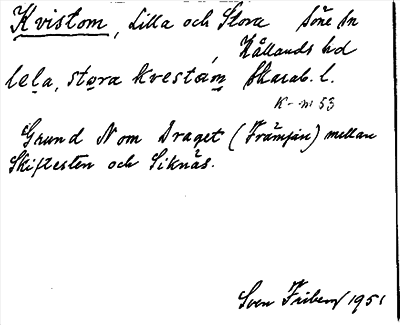 Kvistom, Lilla och Stora Söne sn
Kållands hd
lela, stora kvestám Skarab. l.
K-m 53
Grund N om Draget (Främjan) mellan
Skiftesten och Siknäs.
Sven Friberg 1951